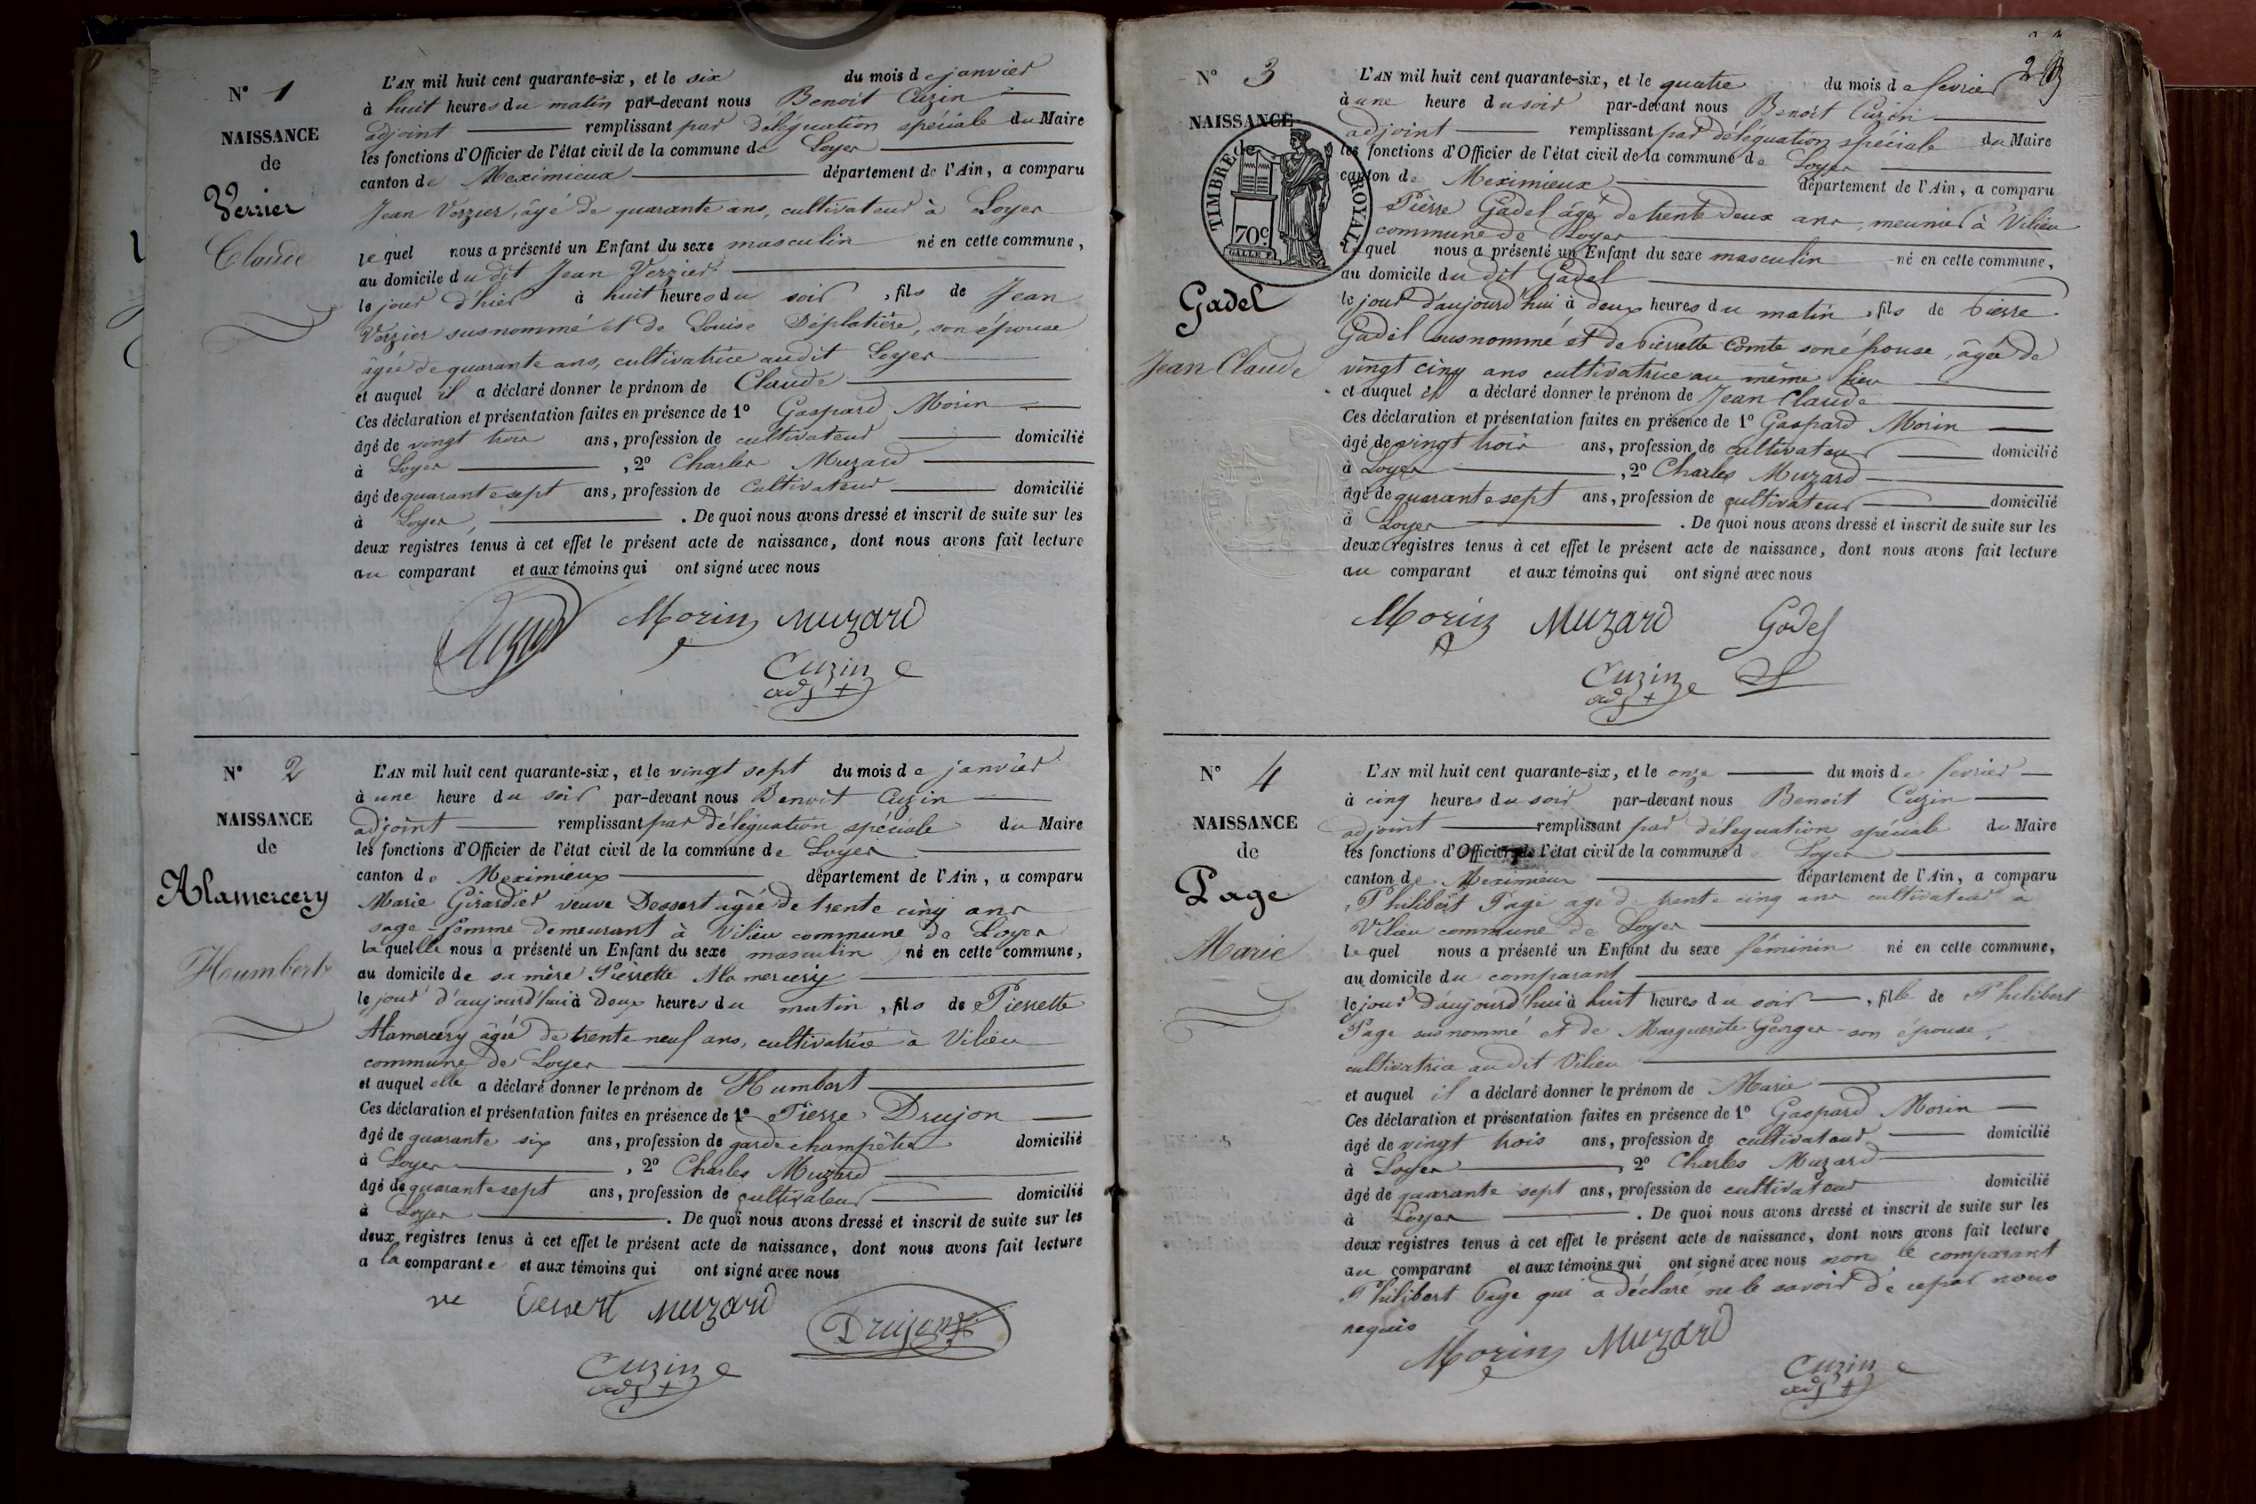 N° 1
NAISSANCE
de
Verzier
Claude
L'AN mil huit cent quarante-six, et le six du mois de janvier
à huit heures du matin par-devant nous Benoit Cuzin
adjoint remplissant par déléguation spéciale du Maire
les fonctions d'Officier de l'état civil de la commune de Loyer
canton de Meximieux département de l'Ain, a comparu
Jean Verzier, âgé de quarante ans, cultivateur à Loyer
lequel nous a présenté un Enfant du sexe masculin né en cette commune,
au domicile du dit Jean Verzier
le jour d'hier à huit heures du soir, fils de Jean
Verzier susnommé et de Louise Déplatière, son épouse
âgée de quarante ans, cultivatrice audit Loyer
et auquel il a déclaré donner le prénom de Claude
Ces déclaration et présentation faites en présence de 1° Gaspard Morin
âgé de vingt trois ans, profession de cultivateur domicilié
à Loyer, 2° Charles Muzard
âgé de quarante sept ans, profession de Cultivateur domicilié
à Loyer, . De quoi nous avons dressé et inscrit de suite sur les
deux registres tenus à cet effet le présent acte de naissance, dont nous avons fait lecture
au comparant et aux témoins qui ont signé avec nous
Morin Muzard
Cuzin
adj
N° 2
NAISSANCE
de
Alamercery
Houmbert
L'AN mil huit cent quarante-six, et le vingt sept du mois de janvier
à une heure du soir par-devant nous Benoit Cuzin
adjoint remplissant par déléguation spéciale du Maire
les fonctions d'Officier de l'état civil de la commune de Loyer
canton de Meximieux département de l'Ain, a comparu
Marie Girardier veuve Dessert âgée de trente cinq ans
sage-femme demeurant à Vilieu commune de Loyer
laquelle nous a présenté un Enfant du sexe masculin né en cette commune,
au domicile de sa mère Pierrette Alamercery
le jour d'aujourd'hui à deux heures du matin, fils de Pierrette
Alamercery âgée de trente neuf ans, cultivatrice à Vilieu
commune de Loyer
et auquel elle a déclaré donner le prénom de Humbert
Ces déclaration et présentation faites en présence de 1° Pierre Drujon
âgé de quarante six ans, profession de garde champêtre domicilié
à Loyer, 2° Charles Muzard
âgé de quarante sept ans, profession de cultivateur domicilié
à Loyer. De quoi nous avons dressé et inscrit de suite sur les
deux registres tenus à cet effet le présent acte de naissance, dont nous avons fait lecture
a la comparante et aux témoins qui ont signé avec nous
ve Dessert Muzard
Drujon
Cuzin
adj
N° 3
NAISSANCE
de
TIMBRE ROYAL
70c
Gadel
Jean Claude
L'AN mil huit cent quarante-six, et le quatre du mois de fevrier
à une heure du soir par-devant nous Benoit Cuzin
adjoint remplissant par déléguation spéciale du Maire
les fonctions d'Officier de l'état civil de la commune de Loyer
canton de Meximieux département de l'Ain, a comparu
Pierre Gadel âgé de trente deux ans, meunier à Vilieu
commune de Loyer
lequel nous a présenté un Enfant du sexe masculin né en cette commune,
au domicile du dit Gadel
le jour d'aujourd'hui à deux heures du matin, fils de Pierre
Gadel susnommé et de Pierrette Comte son épouse, âgée de
vingt cinq ans cultivatrice au même lieu
et auquel il a déclaré donner le prénom de Jean Claude
Ces déclaration et présentation faites en présence de 1° Gaspard Morin
âgé de vingt trois ans, profession de cultivateur domicilié
à Loyer, 2° Charles Muzard
âgé de quarante sept ans, profession de cultivateur domicilié
à Loyer. De quoi nous avons dressé et inscrit de suite sur les
deux registres tenus à cet effet le présent acte de naissance, dont nous avons fait lecture
au comparant et aux témoins qui ont signé avec nous
Morin Muzard Gadel
Cuzin
adj
N° 4
NAISSANCE
de
Page
Marie
L'AN mil huit cent quarante-six, et le onze du mois de fevrier
à cinq heures du soir par-devant nous Benoit Cuzin
adjoint remplissant par déleguation spéciale du Maire
les fonctions d'Officier de l'état civil de la commune d Loyer
canton de Meximieux département de l'Ain, a comparu
Philibert Page agé de trente cinq ans cultivateur à
Vilieu commune de Loyer
lequel nous a présenté un Enfant du sexe féminin né en cette commune,
au domicile du comparant
le jour d'aujourd'hui à huit heures du soir, fille de Philibert
Page susnommé et de Marguerite Georges son épouse,
cultivatrice audit Vilieu
et auquel il a déclaré donner le prénom de Marie
Ces déclaration et présentation faites en présence de 1° Gaspard Morin
âgé de vingt trois ans, profession de cultivateur domicilié
à Loyer, 2° Charles Muzard
âgé de quarante sept ans, profession de cultivateur domicilié
à Loyer. De quoi nous avons dressé et inscrit de suite sur les
deux registres tenus à cet effet le présent acte de naissance, dont nous avons fait lecture
au comparant et aux témoins qui ont signé avec nous non le comparant
Philibert Page qui a déclaré ne le savoir de ce par nous
requis
Morin Muzard
Cuzin
adj